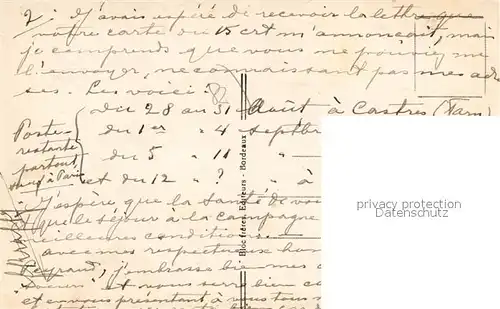 2/. J'avais espéré de recevoir la lettre que
votre carte du 15 crt m'annonçait, mais
je comprends que vous ne pouviez me
l'envoyer, ne connaissant pas mes adres-
ses. Les voici :
du 28 au 31 Août à Castres (Tarn)
du 1er " 4 Septbre
du 5 " 11 "
et du 12 " ? " à
Poste
restante
partout
sauf à Paris
J'espère que la santé de vo
que le séjour à la campagne
meilleures conditions.
avec mes respectueux hom
j'embrasse bien mes
et nous serre bien
et en vous présentant à vous tous
Bloc frères, Editeurs - Bordeaux
privacy protection
Datenschutz